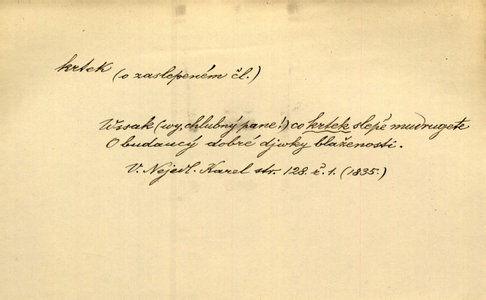 krtek (o zaslepeném čl.)
Wssak (wy, chlubný pane!) co krtek slepě mudrugete
O budaucý dobré djwky blaženosti.
V. Nejedl. Karel str. 128. č. 1. (1835.)